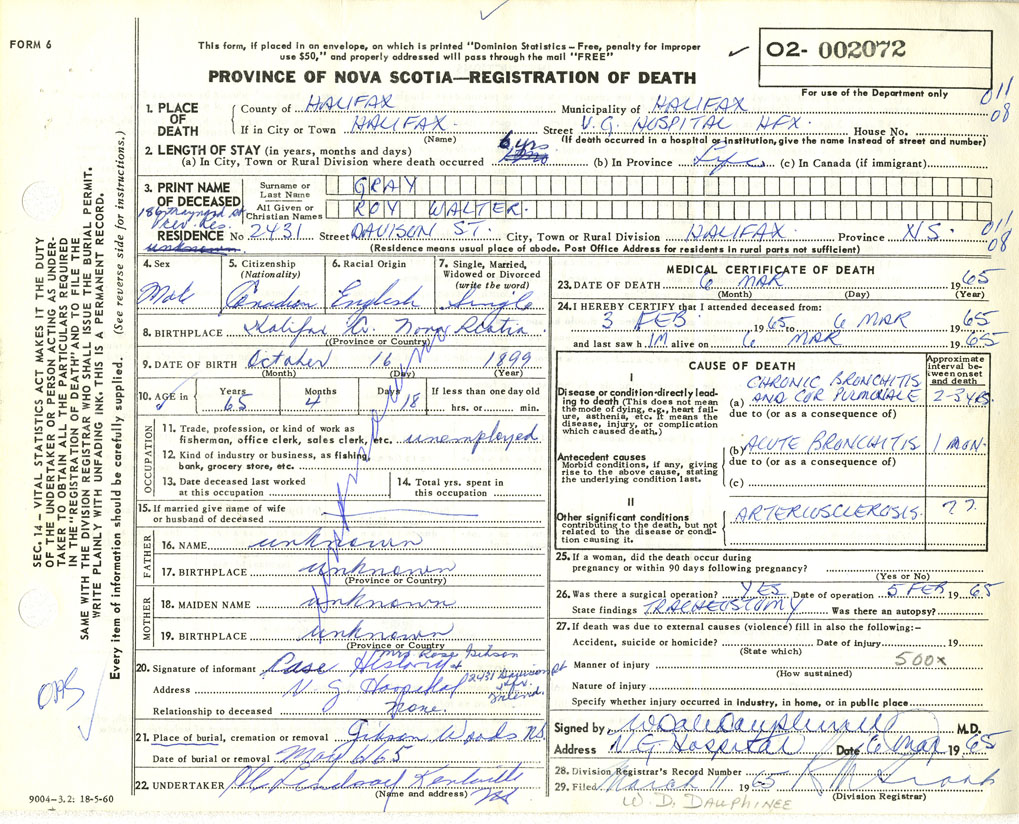 FORM 6
This form, if placed in an envelope, on which is printed "Dominion Statistics – Free, penalty for improper
use $50," and properly addressed will pass through the mail "FREE"
PROVINCE OF NOVA SCOTIA—REGISTRATION OF DEATH
✓ 02- 002072
For use of the Department only
011
08
1. PLACE OF DEATH
County of HALIFAX Municipality of HALIFAX
If in City or Town HALIFAX. Street V.G. HOSPITAL HFX. House No.
(Name) (If death occurred in a hospital or institution, give the name instead of street and number)
2. LENGTH OF STAY (in years, months and days)
(a) In City, Town or Rural Division where death occurred 6 yrs (b) In Province Life (c) In Canada (if immigrant)
3. PRINT NAME OF DECEASED
Surname or Last Name GRAY
All Given or Christian Names ROY WALTER.
186 Maynard St
RESIDENCE No 2431 Street DAVISON ST. City, Town or Rural Division HALIFAX Province N.S.
011
08
unknown
(Residence means usual place of abode. Post Office Address for residents in rural parts not sufficient)
4. Sex
Male
5. Citizenship (Nationality)
Canadian
6. Racial Origin
English
7. Single, Married, Widowed or Divorced (write the word)
Single
8. BIRTHPLACE Halifax Co. Nova Scotia
(Province or Country)
9. DATE OF BIRTH October 16 1899
(Month) (Day) (Year)
10. AGE in Years 65 Months 4 Days 18 If less than one day old hrs. or min.
OCCUPATION
11. Trade, profession, or kind of work as fisherman, office clerk, sales clerk, etc. unemployed
12. Kind of industry or business, as fishing, bank, grocery store, etc.
13. Date deceased last worked at this occupation
14. Total yrs. spent in this occupation
15. If married give name of wife or husband of deceased
FATHER
16. NAME unknown
17. BIRTHPLACE unknown
(Province or Country)
MOTHER
18. MAIDEN NAME unknown
19. BIRTHPLACE unknown
(Province or Country)
20. Signature of informant Case History + Mrs Rose Gibson
Address V. G. Hospital 2431 Davison St Hfx.
Relationship to deceased None.
21. Place of burial, cremation or removal Gibson Woods NS
Date of burial or removal
22. UNDERTAKER Kentville NS
(Name and address)
9004-3.2: 18-5-60
MEDICAL CERTIFICATE OF DEATH
23. DATE OF DEATH 6 MAR 1965
(Month) (Day) (Year)
24. I HEREBY CERTIFY that I attended deceased from:
3 FEB 1965 to 6 MAR 1965
and last saw h IM alive on 6 MAR 1965
CAUSE OF DEATH
Approximate interval between onset and death
I
Disease or condition directly leading to death (This does not mean the mode of dying, e.g., heart failure, asthenia, etc. It means the disease, injury, or complication which caused death.)
(a) CHRONIC BRONCHITIS AND COR PULMONALE 2-3 YRS
due to (or as a consequence of)
Antecedent causes
Morbid conditions, if any, giving rise to the above cause, stating the underlying condition last.
(b) ACUTE BRONCHITIS 1 MON.
due to (or as a consequence of)
(c)
II
Other significant conditions contributing to the death, but not related to the disease or condition causing it.
ARTERIOSCLEROSIS. ??
25. If a woman, did the death occur during
pregnancy or within 90 days following pregnancy?
(Yes or No)
26. Was there a surgical operation? YES Date of operation 5 FEB 1965
State findings TRACHEOSTOMY Was there an autopsy?
27. If death was due to external causes (violence) fill in also the following:–
Accident, suicide or homicide? Date of injury 19
(State which)
Manner of injury 500x
(How sustained)
Nature of injury
Specify whether injury occurred in industry, in home, or in public place
Signed by M.D.
Address V G Hospital Date 6 Mar 1965
28. Division Registrar's Record Number
29. Filed March 11 1965
(Division Registrar)
W. D. DAUPHINEE
SEC. 14 – VITAL STATISTICS ACT MAKES IT THE DUTY
OF THE UNDERTAKER OR PERSON ACTING AS UNDER-
TAKER TO OBTAIN ALL THE PARTICULARS REQUIRED
IN THE "REGISTRATION OF DEATH" AND TO FILE THE
SAME WITH THE DIVISION REGISTRAR WHO SHALL ISSUE THE BURIAL PERMIT.
WRITE PLAINLY WITH UNFADING INK. THIS IS A PERMANENT RECORD.
Every item of information should be carefully supplied. (See reverse side for instructions.)